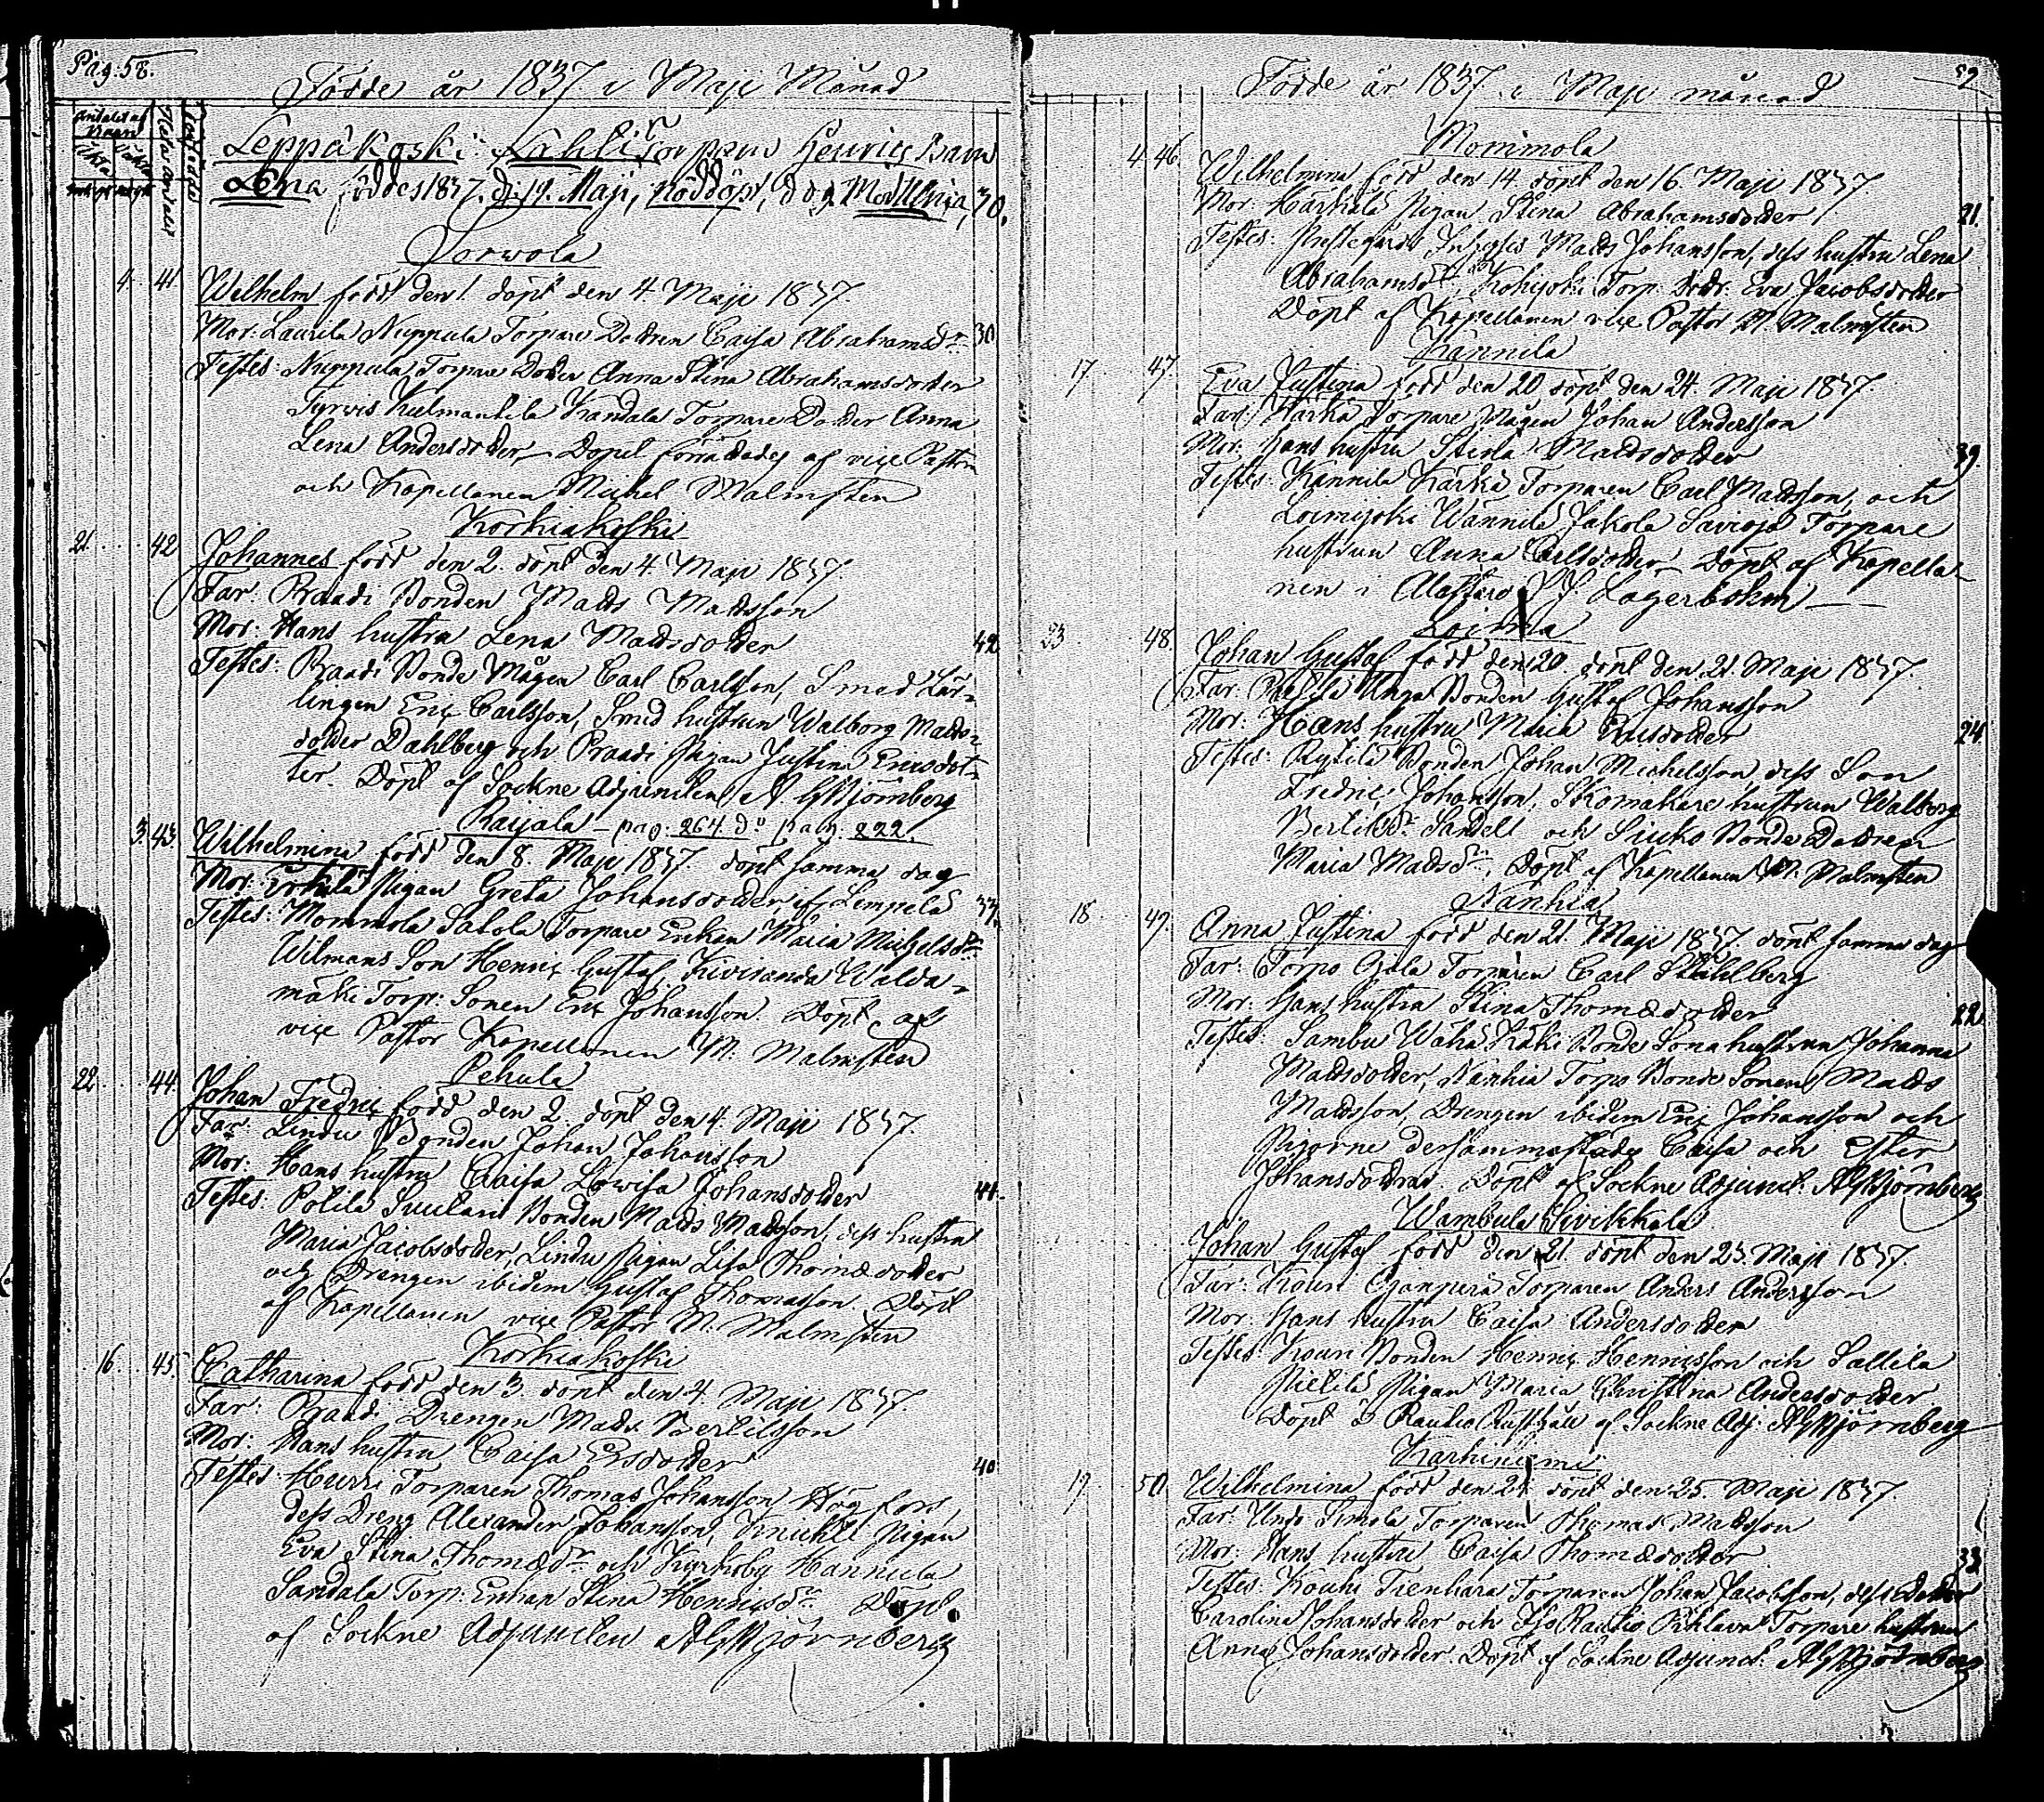 Pag: 58.
Födde år 1837 i Maji Månad
Leppäkoski: Lahti Torparen Henrics Barn
Lena föddes 1837. d. 19. Maji, nöddöpt, dog 30.
Sorwola
4. 41 Wilhelm född den 1. döpt den 4 Maji 1837.
Mor: Laurila Nuppula Torpare Dottren Caisa Abrahamsdr 30
Testes: Nuppula Torpare Dotter Anna Stina Abrahamsdotter
Tyrvis Kandala Torpare Dotter Anna
Lena Andersdotter, Dopet förrättades af vice Pastor
och Kapellanen Michel Malmsten
Korkiakoski
21. 42 Johannes född den 2. döpt den 4. Maji 1837.
Far: Raadi Bonden Matts Mattsson
Mor: Hans hustru Lena Mattsdotter 42
Testes: Raadi Bonde Mågen Carl Carlsson, Smed Lär-
lingen Eric Carlsson, Smed hustrun Walborg Matts-
dotter Dahlberg och Raadi Pigan Justina Ericsdot-
ter. Döpt af Sockne Adjuncten A. G. Björnberg
Raijala - pag. 264. do pag. 222.
3. 43. Wilhelmina född den 8. Maji 1837. döpt samma dag
Mor: Erkilä Pigan Greta Johansdotter if Lempelä 33.
Testes: Mommola Satola Torpare Enkan Maria Michelsdr
Wilmans Son Henric Gustaf, Kiviranda Walda-
mäki Torp: Sonen Eric Johansson. Döpt af
vice Pastor Kapellanen M. Malmsten
Pehula
22. 44. Johan Fredric född den 2 döpt den 4. Maji 1837.
Far: Lindu Bonden Johan Johansson
Mor: Hans hustru Caisa Lovisa Johansdotter 44.
Testes: Potila Bonden Matts Mattsson, dess hustru
Maria Jacobsdotter, Lindu Pigan Lisa Thomædotter
och Drengen ibidem Gustaf Thomasson. Döpt
af Kapellanen vice Pastor M. Malmsten
Korkiakoski
16. 45. Catharina född den 3. döpt den 4. Maji 1837.
Far: Raadi Drengen Matts Bertilsson
Mor: Hans hustru Caisa Ersdotter 40
Testes: Hurri Torparen Thomas Johansson Högfors,
dess Dreng Alexander Johansson, Pigan
Eva Stina Thomædr och Kyrkoby Hannula
Sandala Torp: Enkan Stina Henricsdr Döpt
af Sockne Adjuncten A. G. Björnberg
59
Födde år 1837 i Maji månad
Mommola
4 46. Wilhelmina född den 14. döpt den 16. Maji 1837
Mor: Härkälä Pigan Stina Abrahamsdotter 21.
Testes: Prestegårds Matts Johansson, dess hustru Lena
Abrahamsdr, Kohijoki Torp. Dottr. Eva Jacobsdotter
Döpt af Kapellanen vice Pastor M. Malmsten
Kännilä
17 47. Eva Justina född den 20. döpt den 24. Maji 1837.
Far: Kärki Torpare Mågen Johan Andersson
Mor: Hans hustru Stina Mattsdotter 39.
Testes: Kännilä Kärki Torparen Carl Mattsson, och
Loimijoki Wännilä Jakola Torpare
hustrun Anna Carlsdotter, Döpt af Kapella-
nen i Alastaro Lagerbohm
Loima
23 48. Johan Gustaf född den 20. döpt den 21. Maji 1837.
Far: Bonden Gustaf Johansson
Mor: Hans hustru Maria 24.
Testes: Bonden Johan Michelsson, dess Son
Fredric Johansson, Skomakare hustrun Walborg
Bertilsdr Sandell och Bonde Dottren
Maria Mattsdr, Döpt af Kapellanen M. Malmsten
Nanhia
18 49. Anna Justina född den 21. Maji 1837. döpt samma dag
Far: Torpo Torparen Carl Ståhlberg
Mor: Hans hustru Stina Thomædotter 22.
Testes: Sambu Wäha Käki Bonde Sona hustrun Johanna
Mattsdotter, Nanhia Torpo Bonde Sonen Matts
Mattsson, Drengen ibidem Eric Johansson och
Pigorne dersammastädes Caisa och Ester
Johansdöttrar. Döpt af Sockne Adjunct: A. G. Björnberg
Wambula Sivikkala
Johan Gustaf född den 21. döpt den 23. Maji 1837.
Far: Kouri Torparen Anders Andersson
Mor: Hans hustru Caisa Andersdotter
Testes: Kouri Bonden Henric Henricsson och Sallila
Pietilä Pigan Maria Christina Andersdotter
Döpt å Rautio Rusthåll af Sockne Adj: A. G. Björnberg
Karhiniemi
19 50 Wilhelmina född den 21 döpt den 25. Maji 1837.
Far: Undo Simola Torparen Thomas Mattsson
Mor: Hans hustru Caisa Thomædotter 33
Testes: Kouhi Torparen Johan Jacobsson, dess Dotter
Carolina Johansdotter och Iso Rautio Torpare hustrun
Anna Johansdotter. Döpt af Sockne Adjunct. A. G. Björnberg